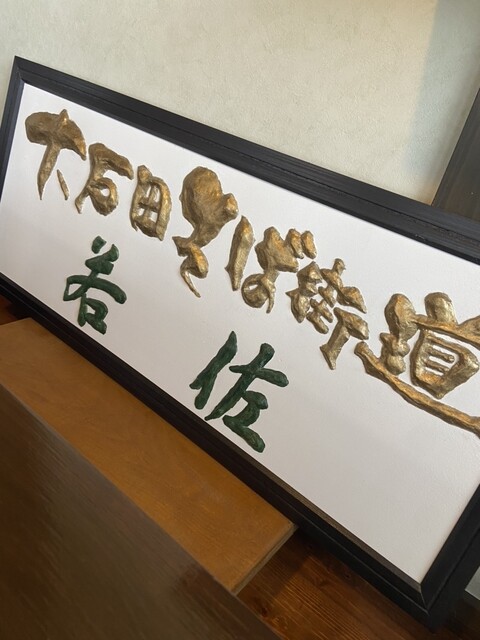 大石田そば街道
若佐